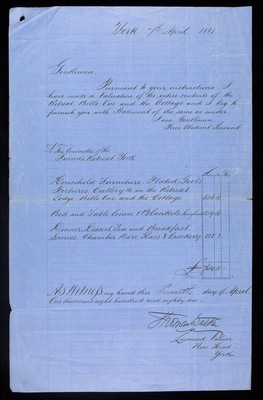 York 7th April 1881
Gentlemen
Pursuant to your instructions I
have made a Valuation of the entire contents of the
Retreat Belle Vue and the Cottage and I beg to
furnish you with Statement of the same as under
I am Gentlemen
Your Obedient Servant
To The Committee of the
Friends Retreat York
Household Furniture Plated Goods
Pictures Cutlery &c in the Retreat
Lodge Belle Vue and the Cottage
Bed and Table Linen & Blankets
Dinner Dessert Tea and Breakfast
Services Chamber Ware Glass & Crockery
As Witness my hand this Seventh day of April
One thousand eight hundred and eighty one
Leonard
New Street
York